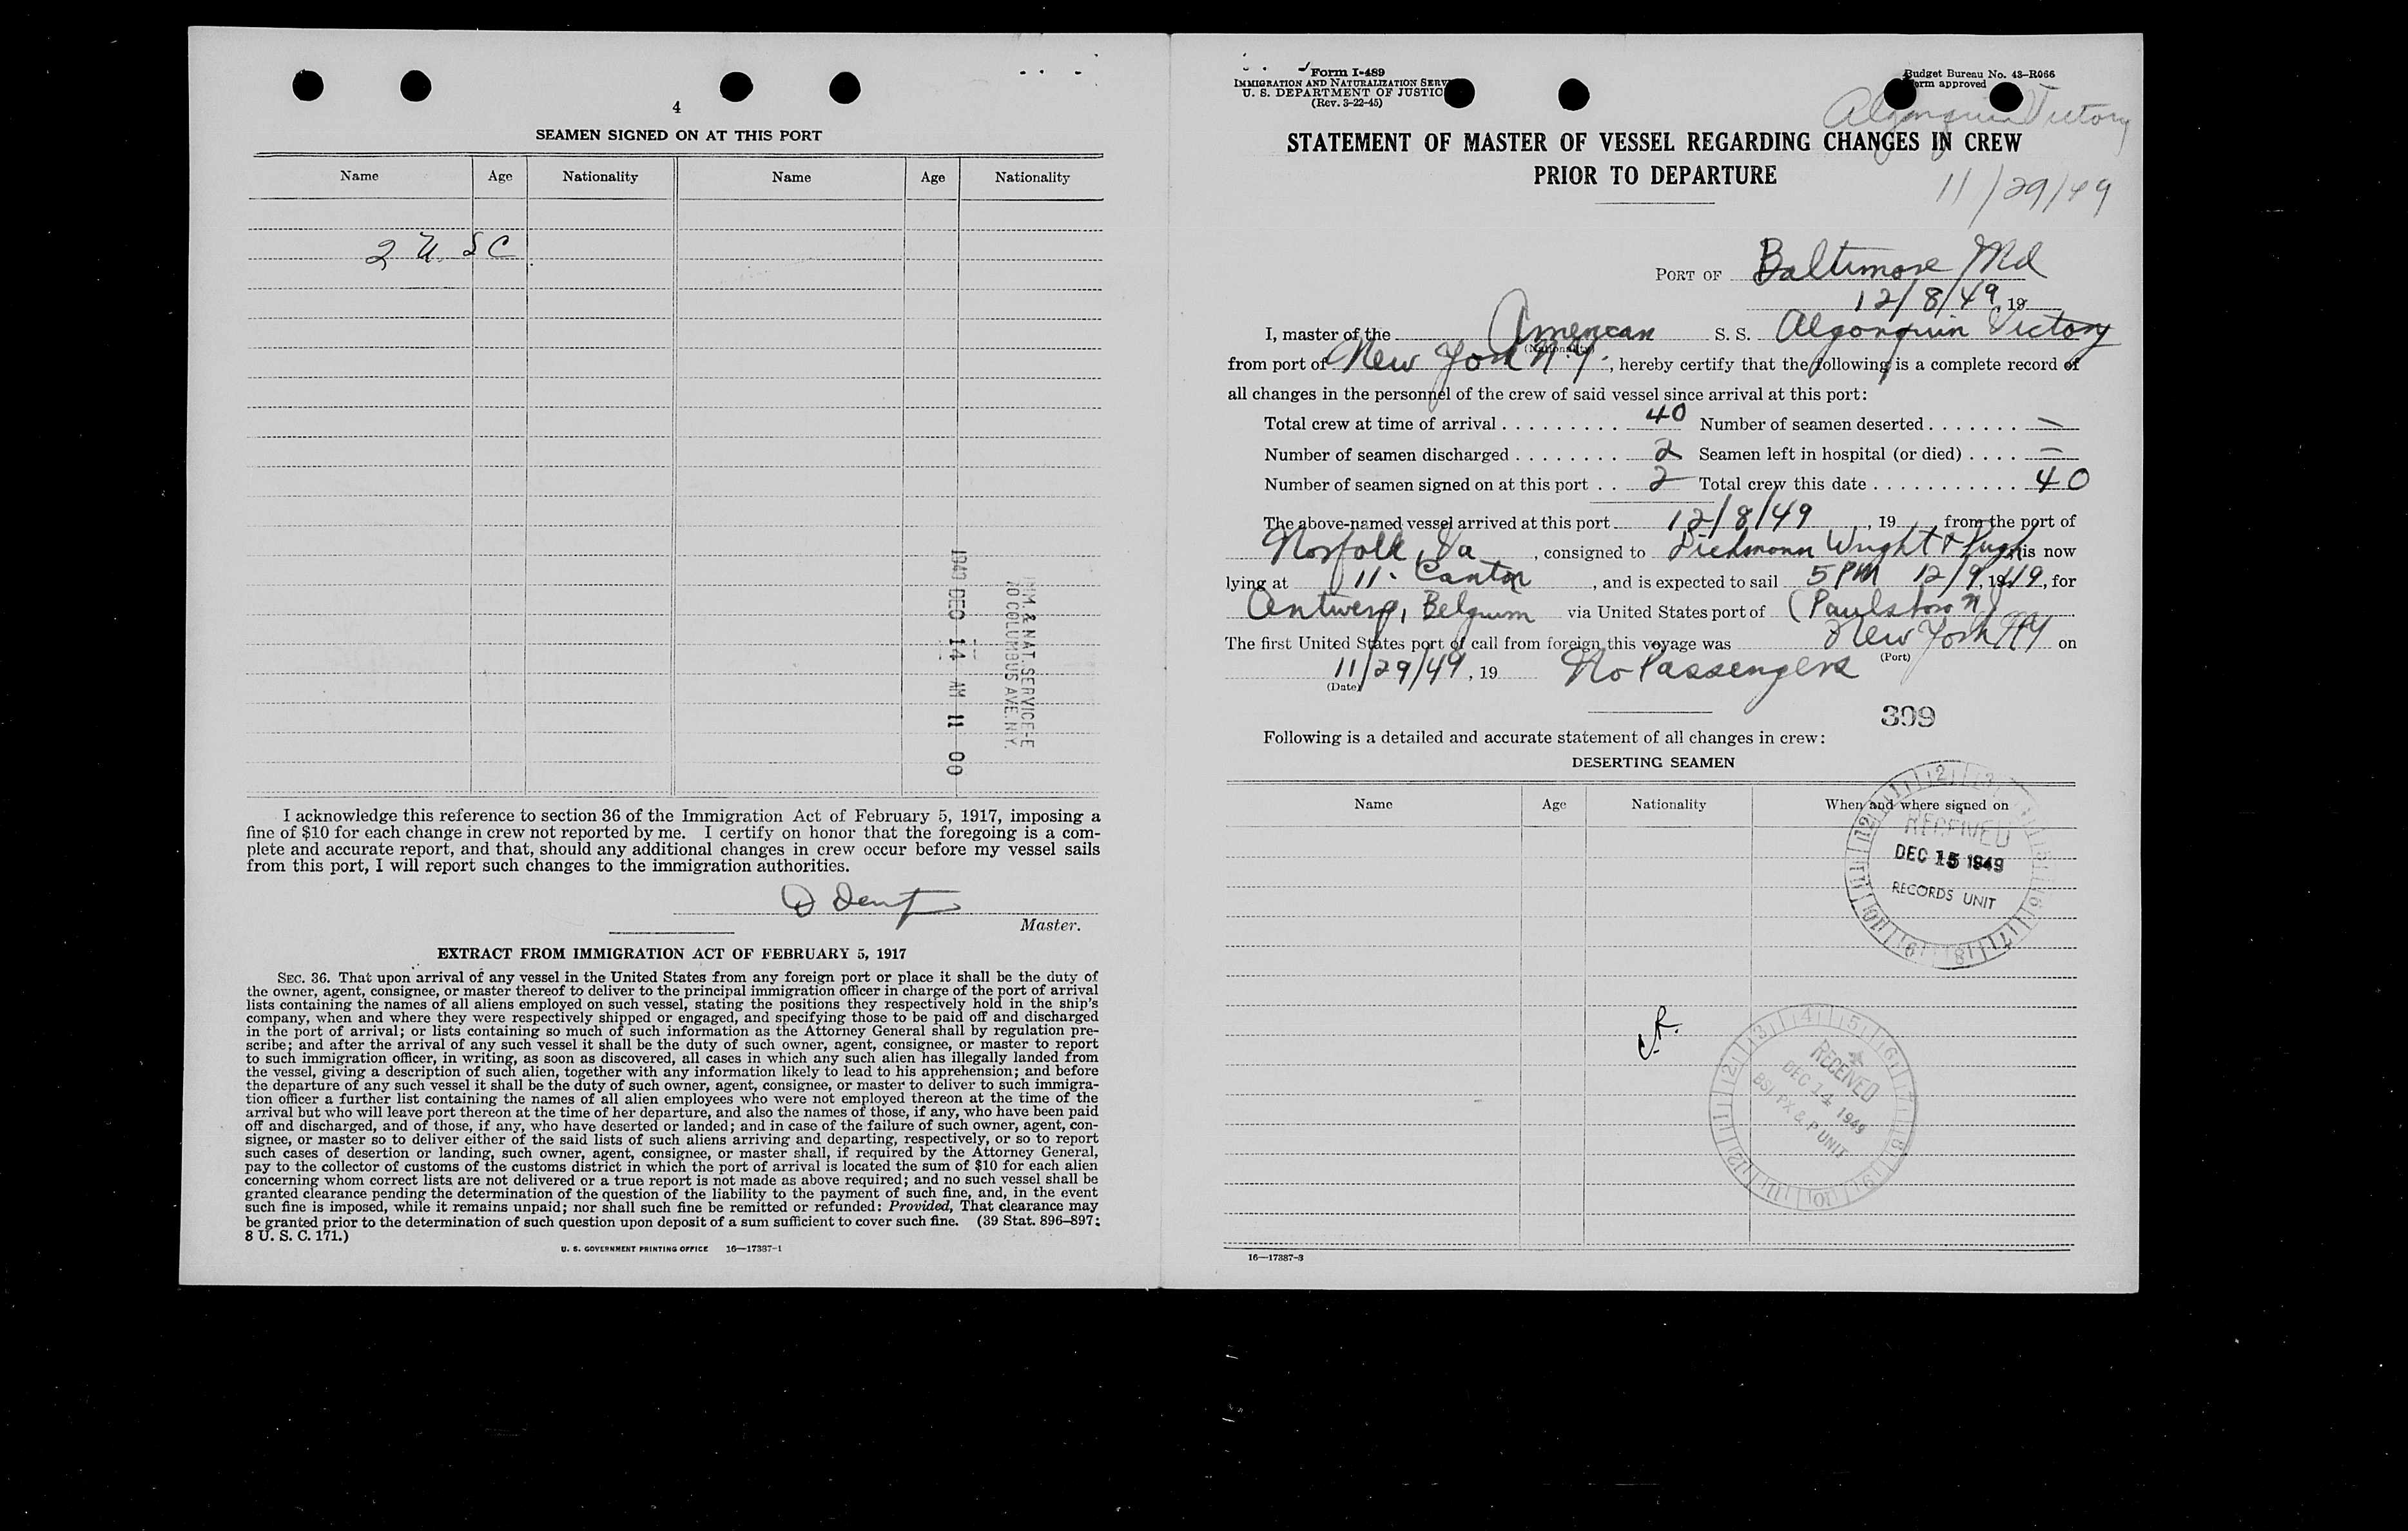 4
SEAMEN SIGNED ON AT THIS PORT
Name Age Nationality Name Age Nationality
2 U. S C
1949 DEC 14 AM 11 00
IMM. & NAT. SERVICE-E
70 COLUMBUS AVE. N.Y.
I acknowledge this reference to section 36 of the Immigration Act of February 5, 1917, imposing a
fine of $10 for each change in crew not reported by me. I certify on honor that the foregoing is a com-
plete and accurate report, and that, should any additional changes in crew occur before my vessel sails
from this port, I will report such changes to the immigration authorities.
Master.
EXTRACT FROM IMMIGRATION ACT OF FEBRUARY 5, 1917
SEC. 36. That upon arrival of any vessel in the United States from any foreign port or place it shall be the duty of
the owner, agent, consignee, or master thereof to deliver to the principal immigration officer in charge of the port of arrival
lists containing the names of all aliens employed on such vessel, stating the positions they respectively hold in the ship's
company, when and where they were respectively shipped or engaged, and specifying those to be paid off and discharged
in the port of arrival; or lists containing so much of such information as the Attorney General shall by regulation pre-
scribe; and after the arrival of any such vessel it shall be the duty of such owner, agent, consignee, or master to report
to such immigration officer, in writing, as soon as discovered, all cases in which any such alien has illegally landed from
the vessel, giving a description of such alien, together with any information likely to lead to his apprehension; and before
the departure of any such vessel it shall be the duty of such owner, agent, consignee, or master to deliver to such immigra-
tion officer a further list containing the names of all alien employees who were not employed thereon at the time of the
arrival but who will leave port thereon at the time of her departure, and also the names of those, if any, who have been paid
off and discharged, and of those, if any, who have deserted or landed; and in case of the failure of such owner, agent, con-
signee, or master so to deliver either of the said lists of such aliens arriving and departing, respectively, or so to report
such cases of desertion or landing, such owner, agent, consignee, or master shall, if required by the Attorney General,
pay to the collector of customs of the customs district in which the port of arrival is located the sum of $10 for each alien
concerning whom correct lists are not delivered or a true report is not made as above required; and no such vessel shall be
granted clearance pending the determination of the question of the liability to the payment of such fine, and, in the event
such fine is imposed, while it remains unpaid; nor shall such fine be remitted or refunded: Provided, That clearance may
be granted prior to the determination of such question upon deposit of a sum sufficient to cover such fine. (39 Stat. 896-897;
8 U. S. C. 171.)
U. S. GOVERNMENT PRINTING OFFICE 16—17387-1
Form I-489
IMMIGRATION AND NATURALIZATION SERV
U. S. DEPARTMENT OF JUSTIC
(Rev. 3-22-45)
Budget Bureau No. 43-R066
orm approved
Algonquin Victory
11/29/49
STATEMENT OF MASTER OF VESSEL REGARDING CHANGES IN CREW
PRIOR TO DEPARTURE
PORT OF Baltimore Md
12/8/49, 19
I, master of the American S. S. Algonquin Victory
(Nationality)
from port of New York N.Y., hereby certify that the following is a complete record of
all changes in the personnel of the crew of said vessel since arrival at this port:
Total crew at time of arrival 40 Number of seamen deserted —
Number of seamen discharged 2 Seamen left in hospital (or died) —
Number of seamen signed on at this port 2 Total crew this date 40
The above-named vessel arrived at this port 12/8/49, 19 from the port of
Norfolk, Va, consigned to Wright & Pugh is now
lying at 11. Canton, and is expected to sail 5 PM 12/9, 1949, for
Antwerp, Belgium via United States port of (Paulsboro N J)
The first United States port of call from foreign this voyage was New York NY on
(Port)
11/29/49, 19 No Passengers
(Date)
399
Following is a detailed and accurate statement of all changes in crew:
DESERTING SEAMEN
Name Age Nationality When and where signed on
RECEIVED
DEC 15 1949
RECORDS UNIT
RECEIVED
DEC 14 1949
BSI, PX & P UNIT
16—17387-3